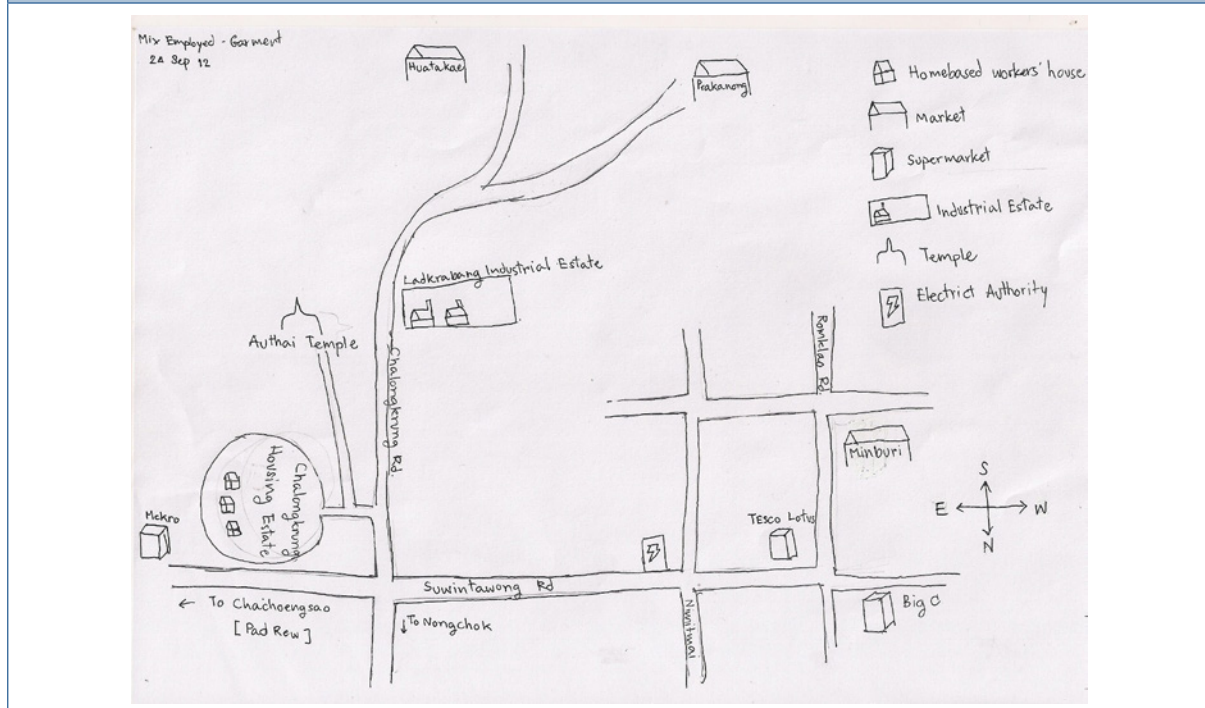 Mix Employed - Garment
24 Sep 12
Huatakae
Prakanong
Homebased workers' house
Market
Supermarket
Industrial Estate
Temple
Electrict Authority
Ladkrabang Industrial Estate
Authai Temple
Chalongkrung Rd.
Romklao Rd.
Minburi
Chalongkrung
Housing Estate
Mckro
Tesco Lotus
S
E
W
N
Suwintawong Rd
Big C
← To Chachoengsao
[Pad Rew]
↓To Nongchok
Nimitmai